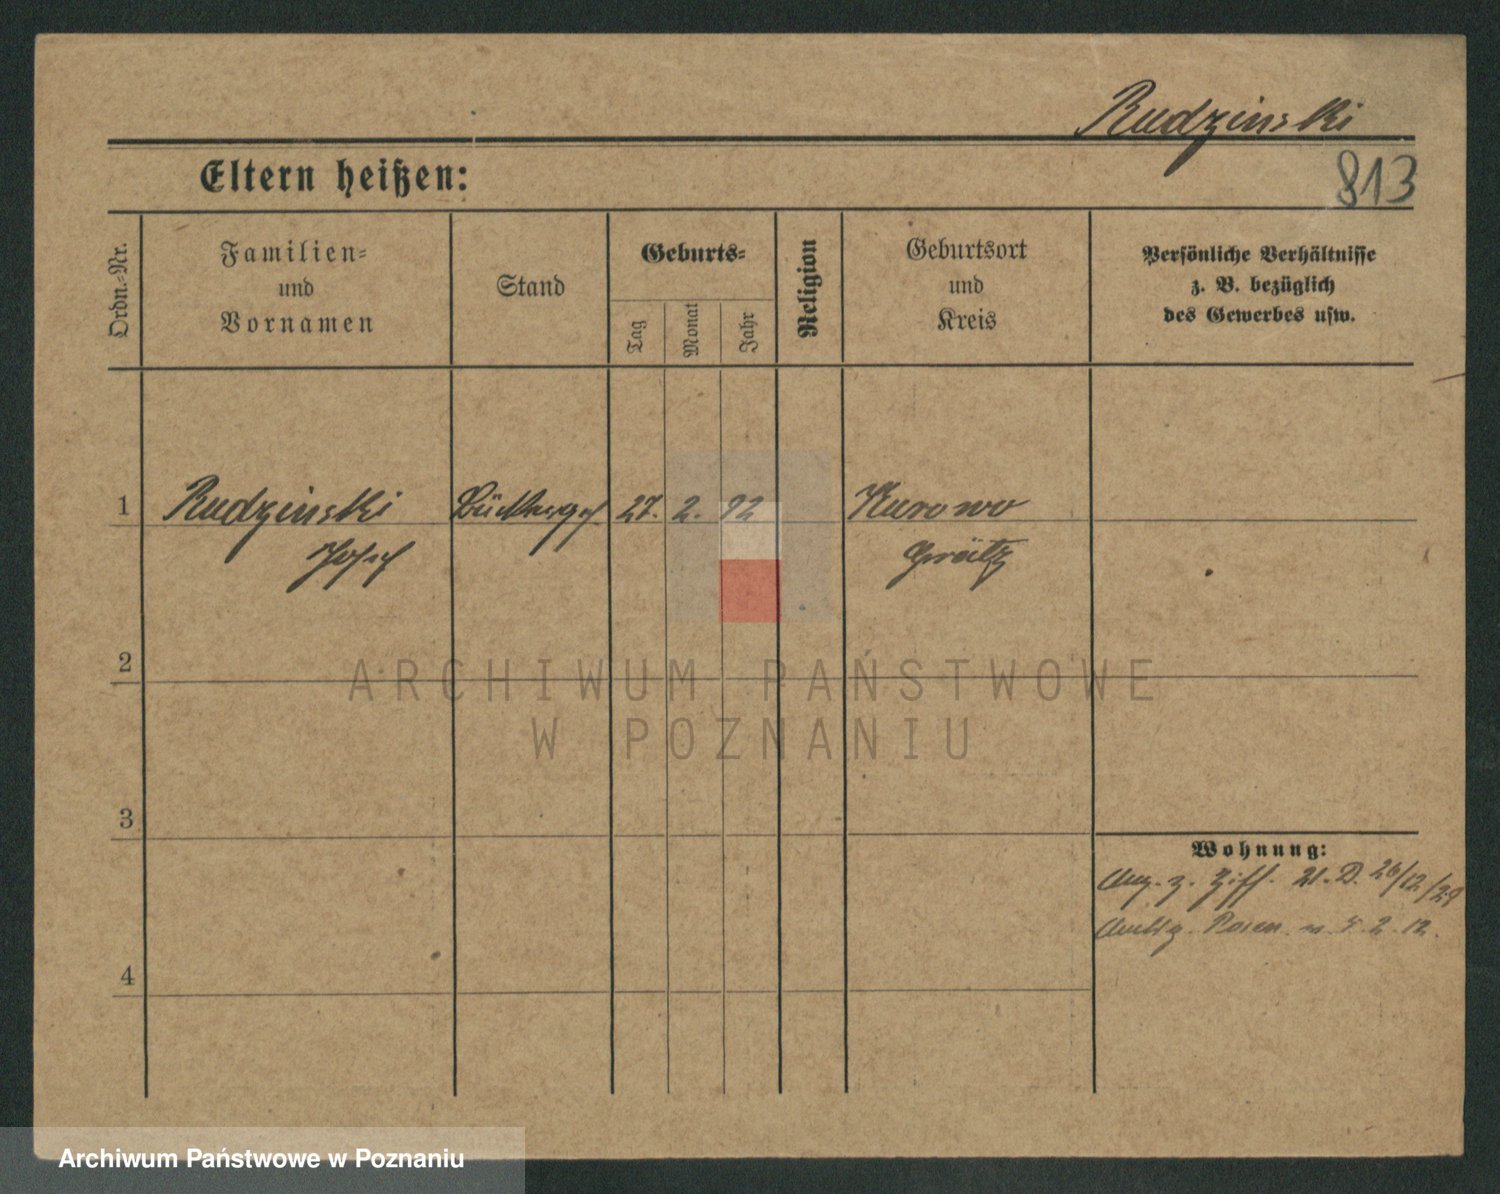 Rudzinski
813
Eltern heißen:
Ordn.-Nr.
Familien-
und
Vornamen
Stand
Geburts-
Tag
Monat
Jahr
Religion
Geburtsort
und
Kreis
Persönliche Verhältnisse
z. B. bezüglich
des Gewerbes usw.
1 Rudzinski 27. 2. 92 Kurowo
Josef Grätz
2
ARCHIWUM PAŃSTWOWE
W POZNANIU
3
Wohnung:
z. Ziff. 21. D. 26/12/
Posen 2. 12.
4
Archiwum Państwowe w Poznaniu